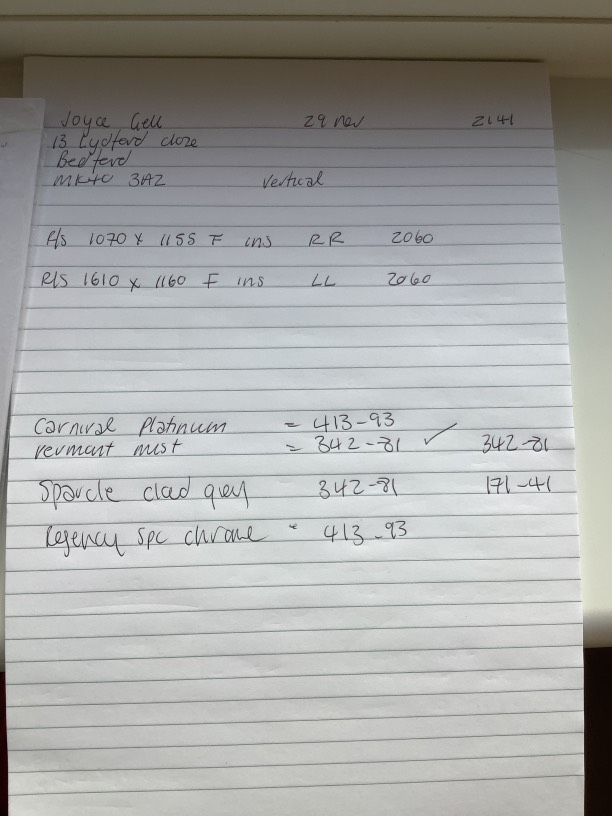 Joyce Gell 29 Nov 2141
13 Lydford close
Bedford
MK40 3AZ vertical
F/S 1070 x 1155 F ins RR 2060
R/S 1610 x 1160 F ins LL 2060
Carnival Platinum = 413-93
vermont mist = 342-81 ✓ 342-81
Sparcle clad grey 342-81 171-41
Regency spc chrome = 413-93